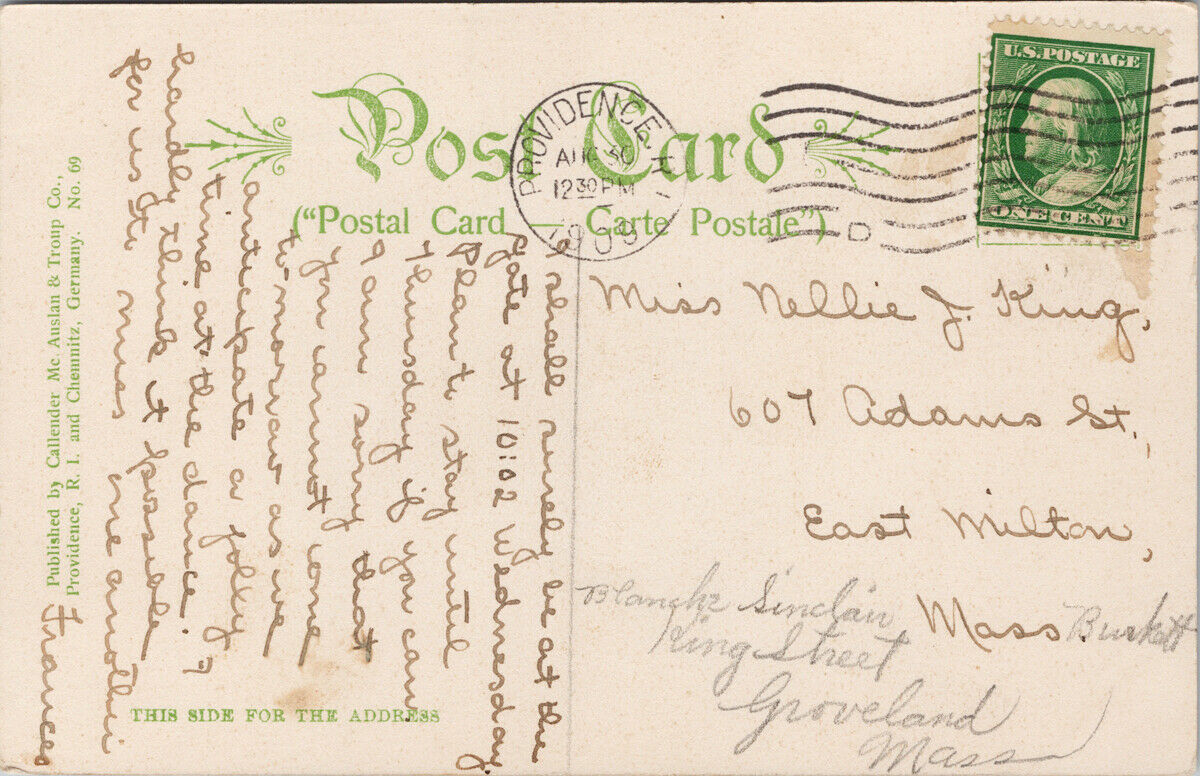 Post Card
("Postal Card — Carte Postale")
PROVIDENCE, R.I.
AUG 30
12 30 PM
1909
D
U.S. POSTAGE
ONE CENT
Miss Nellie J. King,
607 Adams St.,
East Milton,
Mass
Blanche Sinclair
King Street
Burkett
Groveland
Mass
I shall surely be at the
gate at 10:02 Wednesday
Plan to stay until
Thursday if you can
I am sorry that
you cannot come
tomorrow as we
anticipate a jolly
time at the dance.
hardly think it possible
for us to miss one another
Frances
THIS SIDE FOR THE ADDRESS
Published by Callender Mc. Auslan & Troup Co.,
Providence, R. I. and Chemnitz, Germany. No. 69